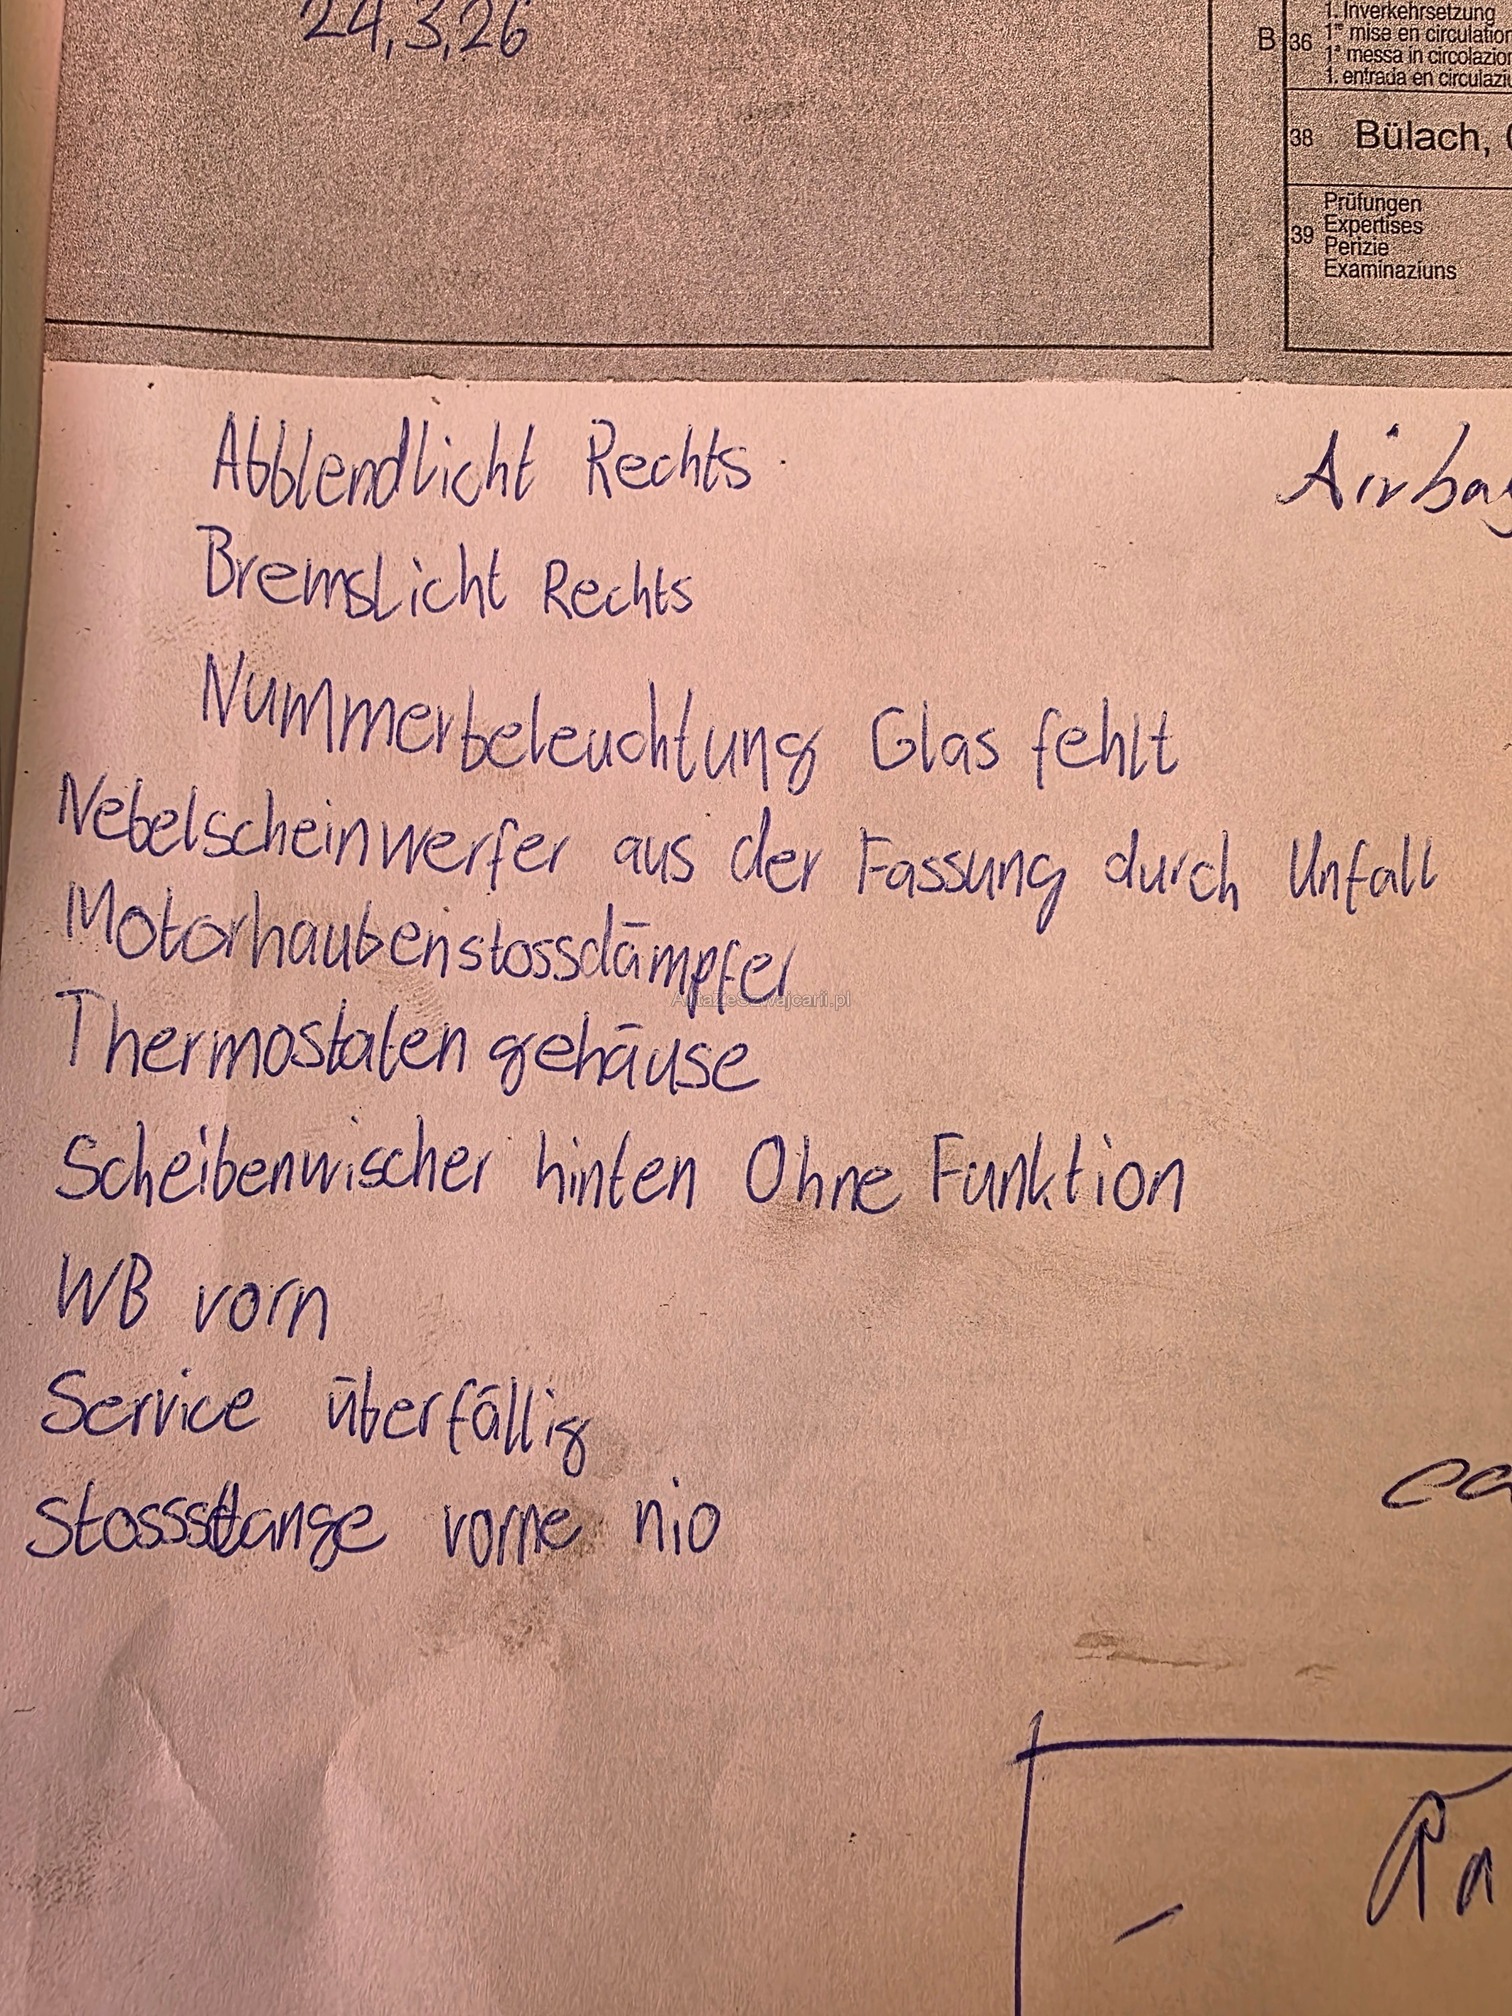 24,3,26
1. Inverkehrsetzung
B 36 1re mise en circulation
1a messa in circolazion
1. entrada en circulaziu
38 Bülach,
Prüfungen
39 Expertises
Perizie
Examinaziuns
Abblendlicht Rechts
Airbag
Bremslicht Rechts
Nummerbeleuchtung Glas fehlt
Nebelscheinwerfer aus der Fassung durch Unfall
Motorhaubenstossdämpfer
AutaZeSzwajcarii.pl
Thermostaten gehäuse
Scheibenwischer hinten Ohne Funktion
WB vorn
Service überfällig
ca
Stossstange vorne nio